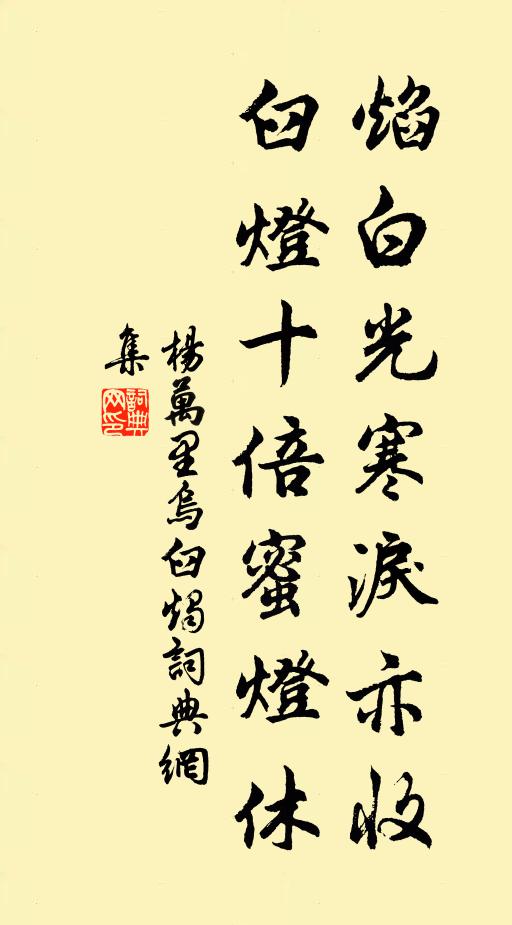 焰白光寒淚亦收
臼燈十倍蜜燈休
楊萬里烏臼燭詞典網
集
詞典
网印